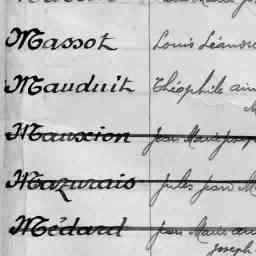 Massot Louis Léandre
Mauduit Théophile
Mauxion Jean Marie Joseph
Mazurais Jules Jean M
Médard Jean Marie
Joseph